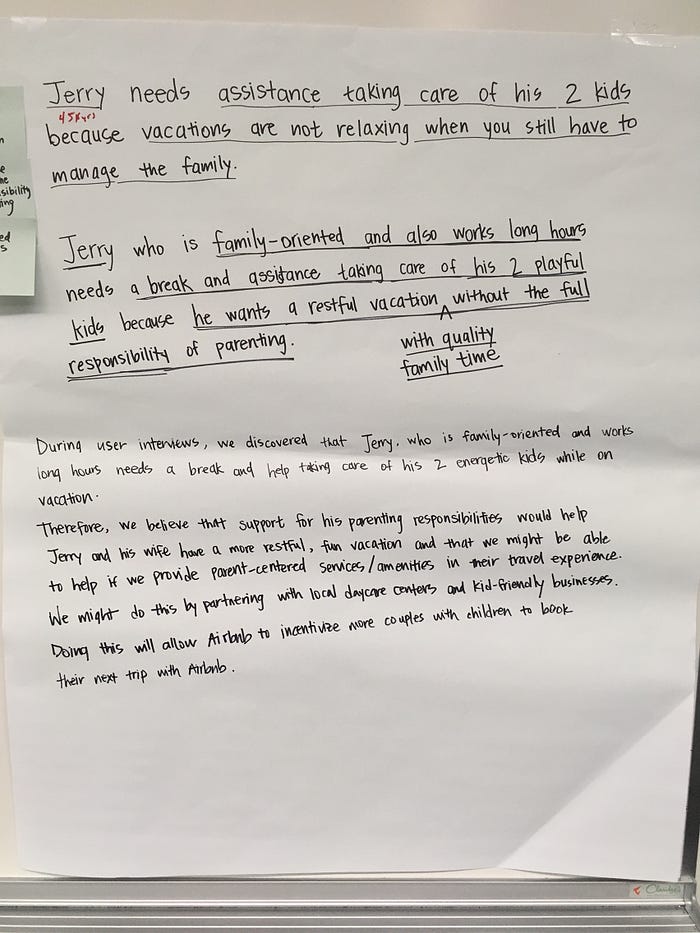 Jerry needs assistance taking care of his 2 kids
because vacations are not relaxing when you still have to
manage the family.
Jerry who is family-oriented and also works long hours
needs a break and assistance taking care of his 2 playful
kids because he wants a restful vacation ^ without the full
with quality
family time
responsibility of parenting.
During user interviews, we discovered that Jerry, who is family-oriented and works
long hours needs a break and help taking care of his 2 energetic kids while on
vacation.
Therefore, we believe that support for his parenting responsibilities would help
Jerry and his wife have a more restful, fun vacation and that we might be able
to help if we provide parent-centered services/amenities in their travel experience.
We might do this by partnering with local daycare centers and kid-friendly businesses.
Doing this will allow Airbnb to incentivize more couples with children to book
their next trip with Airbnb.
sibility